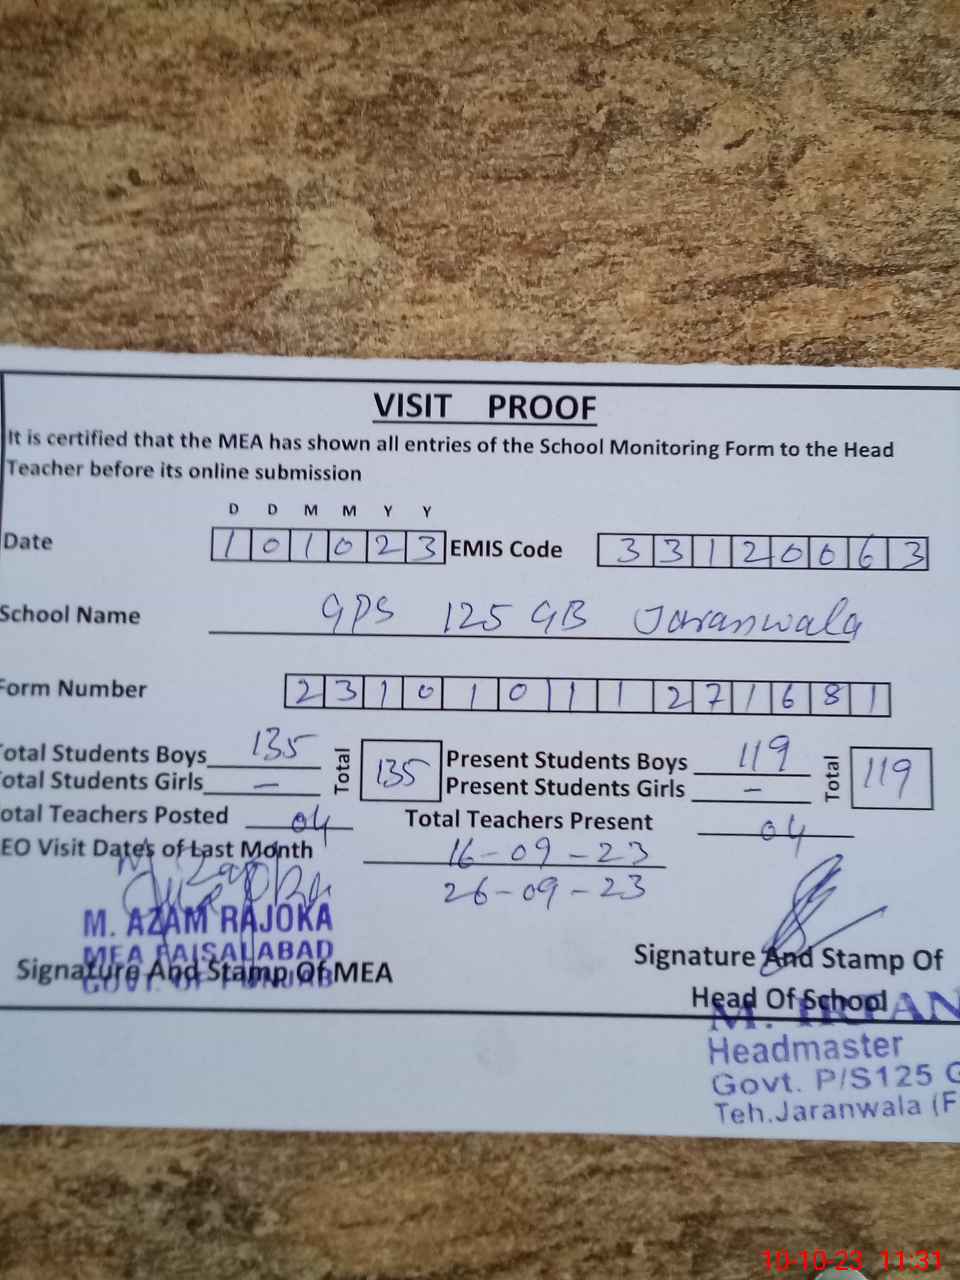 VISIT PROOF
It is certified that the MEA has shown all entries of the School Monitoring Form to the Head
Teacher before its online submission
D D M M Y Y
Date 1 0 1 0 2 3 EMIS Code 3 3 1 2 0 0 6 3
School Name GPS 125 GB Jaranwala
Form Number 2 3 1 0 1 0 1 1 2 7 1 6 8 1
otal Students Boys 135 Total 135 Present Students Boys 119 Total 119
otal Students Girls — Present Students Girls —
otal Teachers Posted 04 Total Teachers Present 04
EO Visit Dates of Last Month 16-09-23
26-09-23
M. AZAM RAJOKA
MEA FAISALABAD
GOVT. OF PUNJAB
Signature And Stamp Of MEA
Signature And Stamp Of
Head Of School
M. IRFAN
Headmaster
Govt. P/S125 G
Teh.Jaranwala (F
10-10-23 11:31